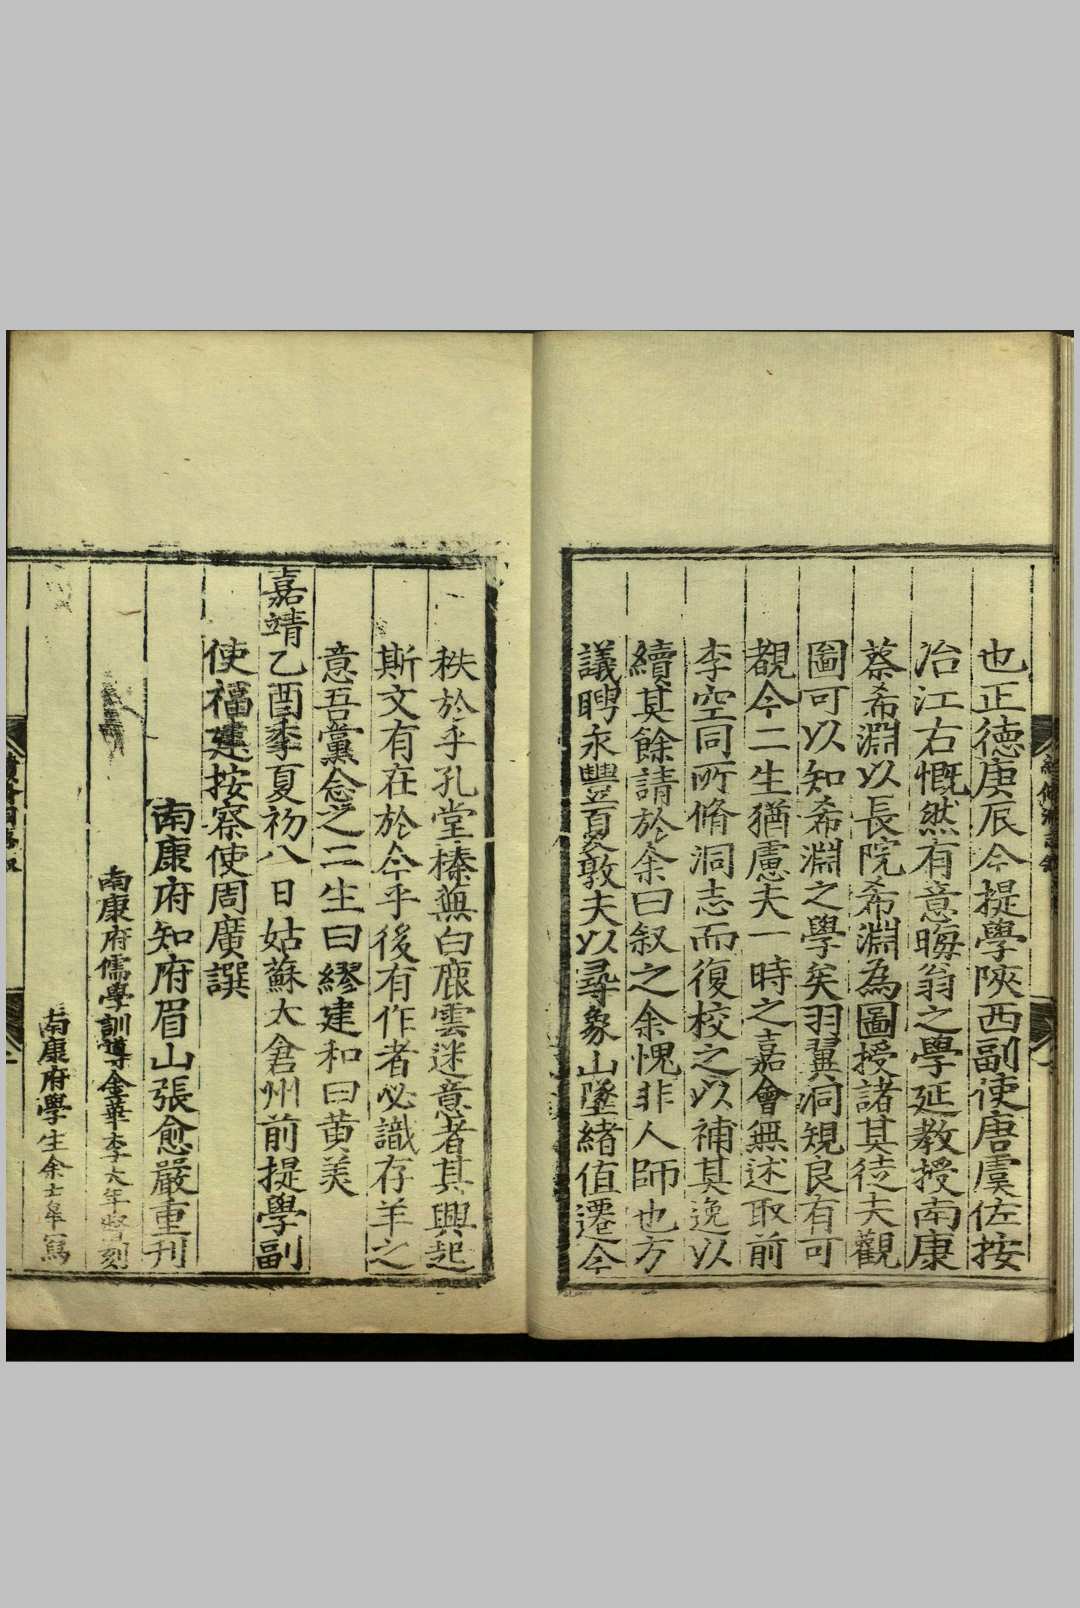 也正德庚辰今提學陝西副使唐虞佐按
冶江右慨然有意晦翁之學延教授南康
蔡希淵以長院希淵為圖授諸其徒夫觀
圖可以知希淵之學矣羽翼洞規良有可
觀今二生猶慮夫一時之嘉會無述取前
李空同所脩洞志而復校之以補其逸以
續其餘請於余曰叙之余愧非人師也方
議聘永豐夏敦夫以尋象山墜緒值遷今
秩於乎孔堂榛蕪白鹿雲迷意者其興起
斯文有在於今乎後有作者必識存羊之
意吾黨念之二生曰繆建和曰黃美
嘉靖乙酉季夏初八日姑蘇太倉州前提學副
使福建按察使周廣譔
南康府知府眉山張愈嚴重刊
南康府儒學訓導金華李大年督刻
南康府學生余士皋寫